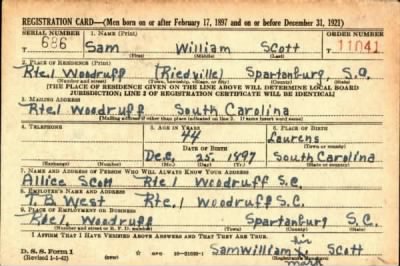 REGISTRATION CARD—(Men born on or after February 17, 1897 and on or before December 31, 1921)
SERIAL NUMBER 1. NAME (Print) ORDER NUMBER
U 686 Sam William Scott 11041
(First) (Middle) (Last)
2. PLACE OF RESIDENCE (Print)
Rte.1 Woodruff (Riedville) Spartanburg, S.C.
(Number and street) (Town, township, village, or city) (County) (State)
[THE PLACE OF RESIDENCE GIVEN ON THE LINE ABOVE WILL DETERMINE LOCAL BOARD
JURISDICTION; LINE 2 OF REGISTRATION CERTIFICATE WILL BE IDENTICAL]
3. MAILING ADDRESS
Rte.1 Woodruff South Carolina
[Mailing address if other than place indicated on line 2. If same insert word same]
4. TELEPHONE 5. AGE IN YEARS 6. PLACE OF BIRTH
44 Laurens
DATE OF BIRTH (Town or county)
Dec. 25, 1897 South Carolina
(Exchange) (Number) (Mo.) (Day) (Yr.) (State or country)
7. NAME AND ADDRESS OF PERSON WHO WILL ALWAYS KNOW YOUR ADDRESS
Allice Scott Rte.1 Woodruff S.C.
8. EMPLOYER'S NAME AND ADDRESS
T. B. West Rte.1 Woodruff S.C.
9. PLACE OF EMPLOYMENT OR BUSINESS
Rte.1, Woodruff Spartanburg S.C.
(Number and street or R. F. D. number) (Town) (County) (State)
I AFFIRM THAT I HAVE VERIFIED ABOVE ANSWERS AND THAT THEY ARE TRUE.
D. S. S. Form 1 his
(Revised 1-5-42) Sam William X Scott
mark